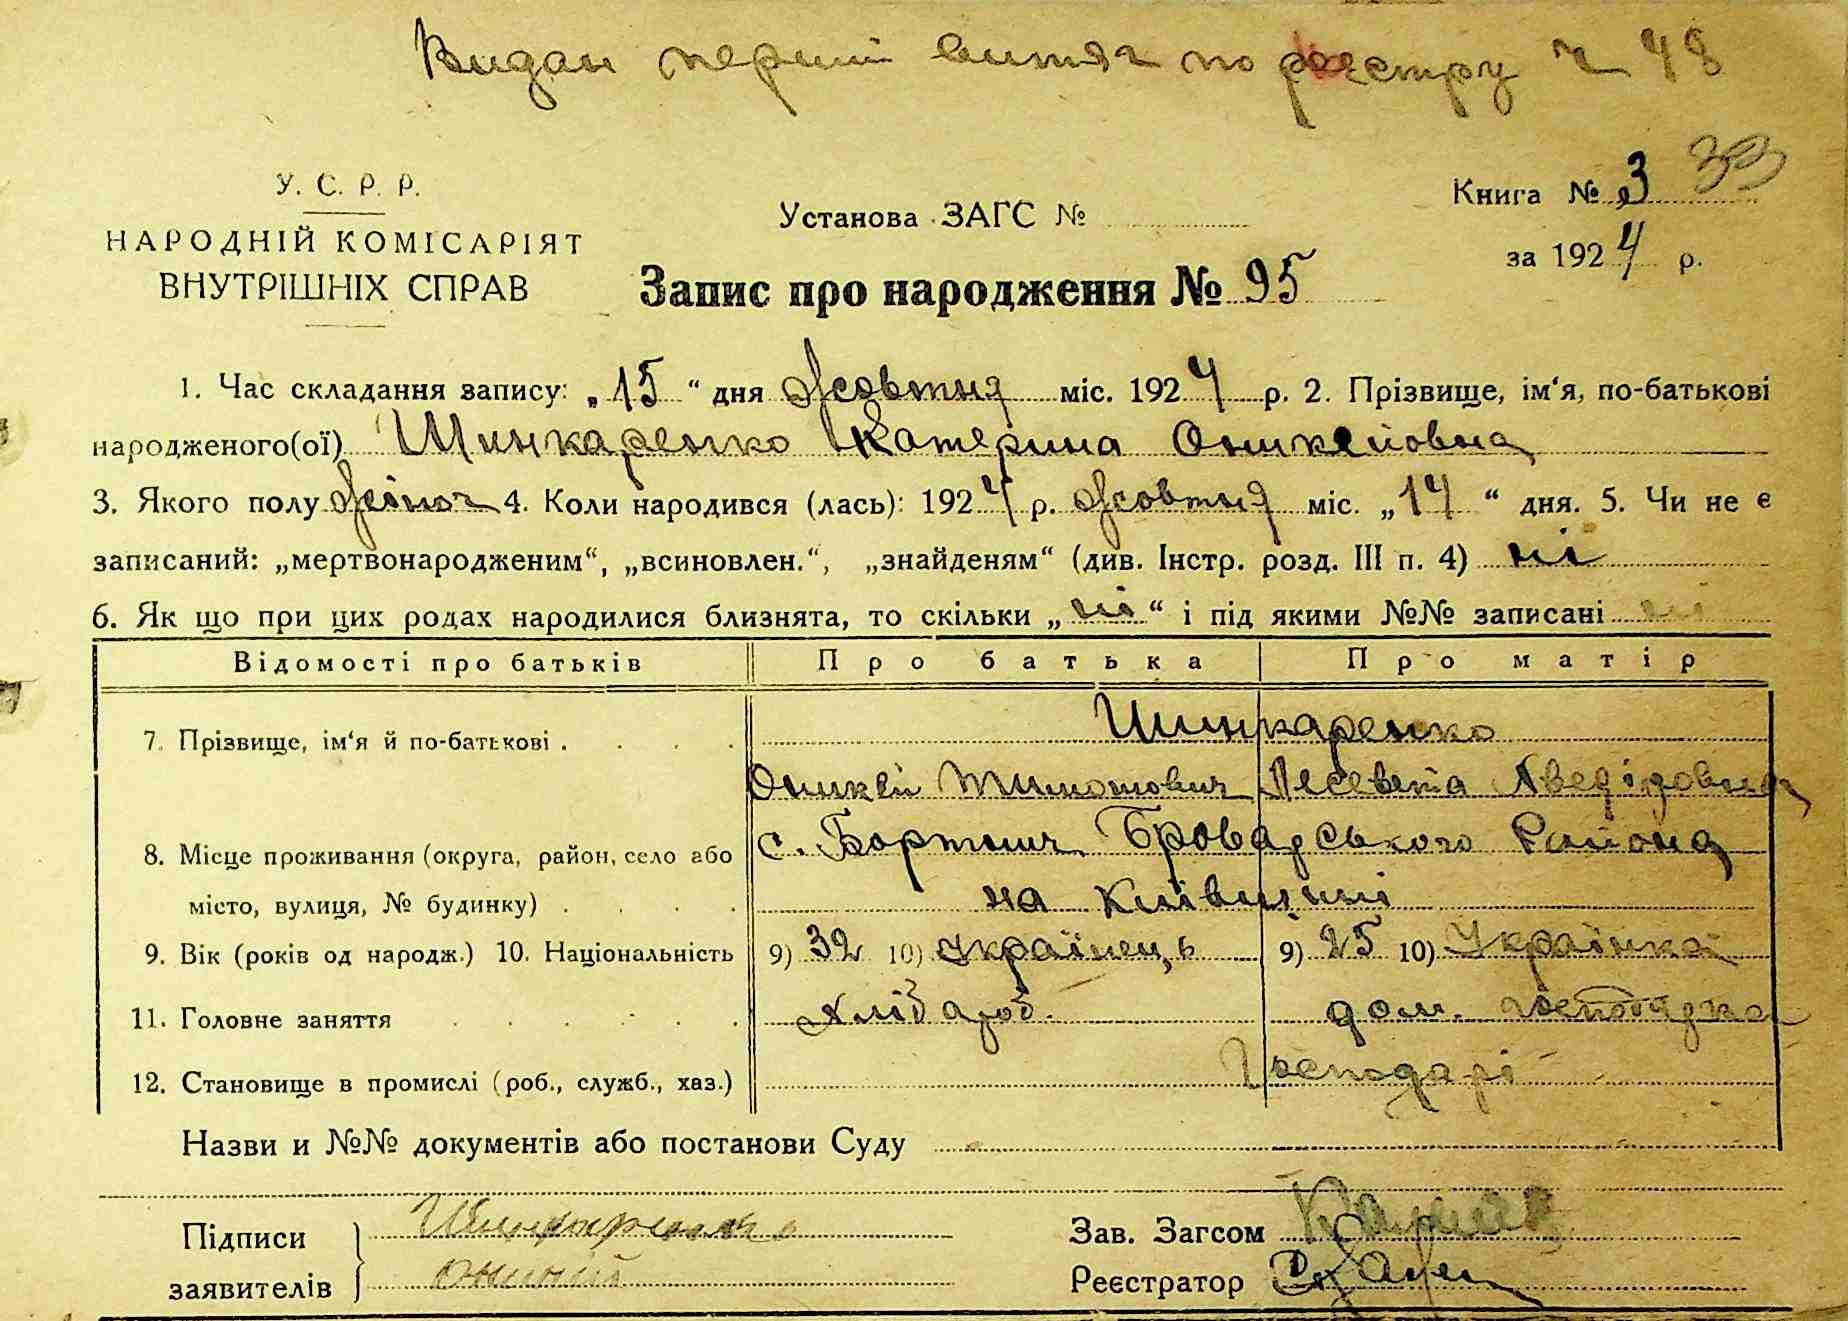 Видан перший витяг по реєстру Ч 48
У. С. Р. Р.
НАРОДНІЙ КОМІСАРІЯТ
ВНУТРІШНІХ СПРАВ
Установа ЗАГС №
Книга № 3 33
за 1924 р.
Запис про народження № 95
1. Час складання запису: „15“ дня Жовтня міс. 1924 р. 2. Прізвище, ім‘я, по-батькові
народженого(ої) Шинкаренко Катерина Оникейовна
3. Якого полу жіноч 4. Коли народився (лась): 1924 р. Жовтня міс. „14“ дня. 5. Чи не є
записаний: „мертвонародженим“, „всиновлен.“, „знайденям“ (див. Інстр. розд. III п. 4) ні
6. Як що при цих родах народилися близнята, то скільки „ні“ і під якими №№ записані ні
Відомості про батьків Про батька Про матір
7. Прізвище, ім‘я й по-батькові . . . . Шинкаренко
Оникей Тимотович Лесевета Аведідовна
8. Місце проживання (округа, район, село або с. Бортнич Броварського Района
місто, вулиця, № будинку) . . . . на Київщині
9. Вік (років од народж.) 10. Національність 9) 32 10) Українець 9) 25 10) Українка
11. Головне заняття . . . . . . Хлібороб. дом. господарка
12. Становище в промислі (роб., служб., хаз.) Господарі
Назви и №№ документів або постанови Суду
Підписи Шинкаренко Зав. Загсом
заявителів Оникій Реєстратор